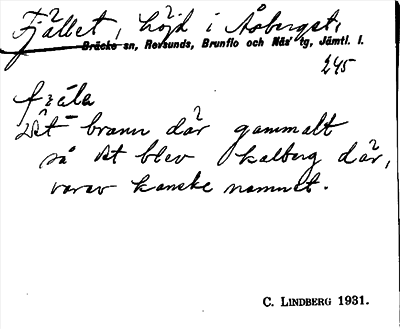 Fjället, höjd i Åsbergst,
Bräcke sn, Revsunds, Brunflo och Näs' tg, Jämtl. l.
245
fjälə
Det brann där gammalt
så det blev kalberg där,
varav kanske namnet.
C. LINDBERG 1931.